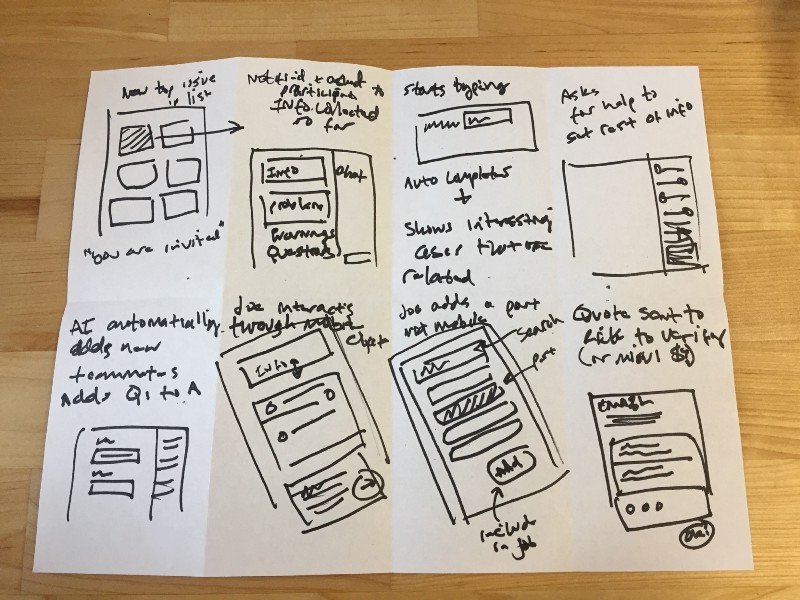 New top issue
in list
"you are invited"
participants
INFO collected
so far
INFO
problems
Warnings
Questions
Chat
Starts typing
Auto completes
+
Shows interesting
cases that are
related
Asks
for help to
get rest of info
AI automatically
adds new
teammates
Adds Qs to A
Joe interacts
through mobile
INFO
Joe adds a part
via mobile
search
part
Add
include
in job
Quote sent to
to verify
EMAIL